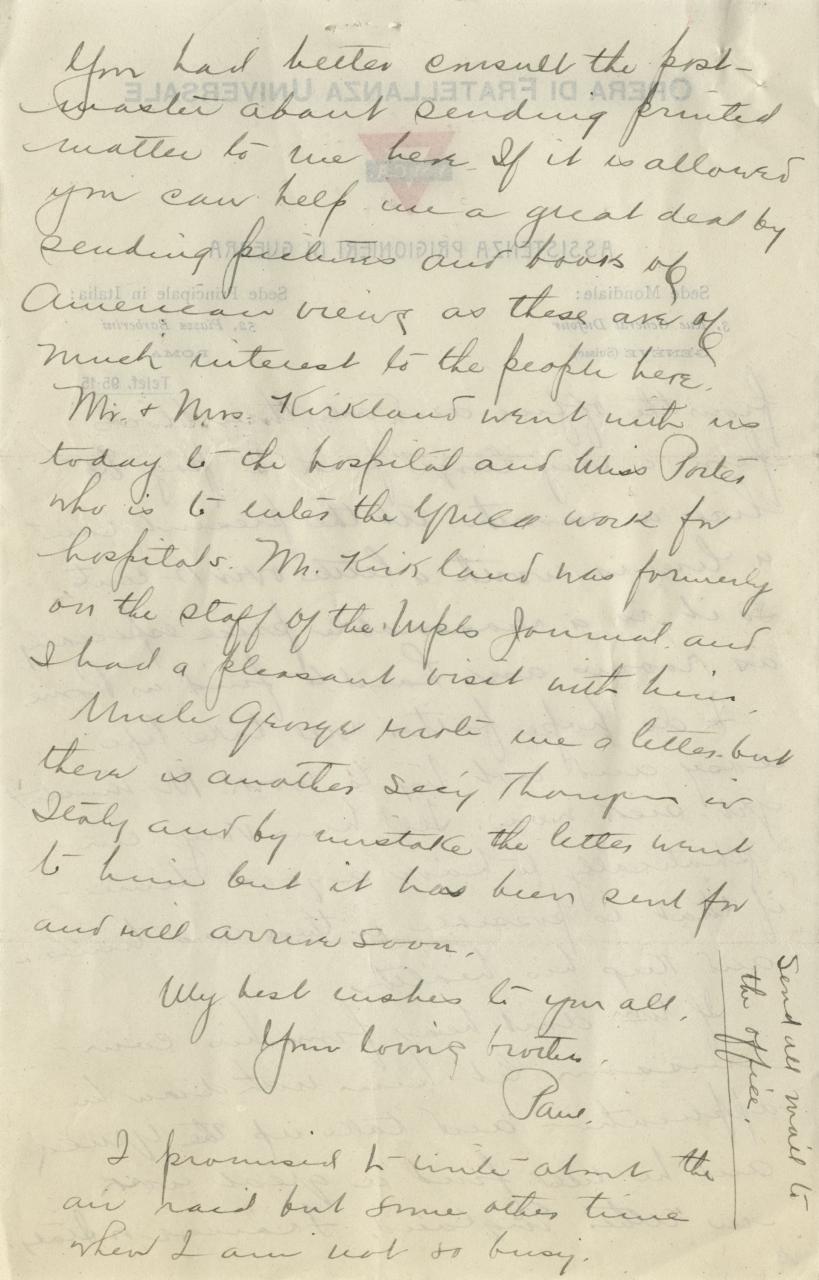 You had better consult the post-
master about sending printed
matter to me here. If it is allowed
you can help me a great deal by
sending pictures and books of
American views as these are of
much interest to the people here.
Mr. + Mrs. Kirkland went with us
today to the hospital and Miss Porter
who is to enter the YMCA work for
hospitals. Mr. Kirkland was formerly
on the staff of the Mpls Journal and
I had a pleasant visit with him.
Uncle George wrote me a letter but
there is another Sec'y Thompson in
Italy and by mistake the letter went
to him but it has been sent for
and will arrive soon.
My best wishes to you all.
Your loving brother.
Paul.
I promised to write about the
air raid but some other time
when I am not so busy.
Send all mail to
the office.
OPERA DI FRATELLANZA UNIVERSALE
YMCA
ASSISTENZA PRIGIONIERI DI GUERRA
Sede Mondiale:
3, Rue Général Dufour
GENÈVE (Suisse)
Sede Principale in Italia:
52, Piazza Barberini
ROMA
Telef. 95-15